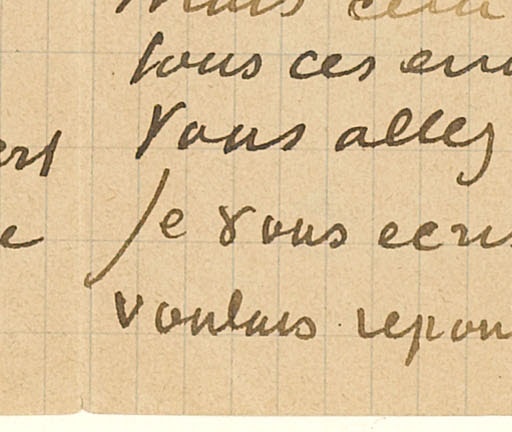 mais cela
tous ces enn
Vous allez
Je vous ecris
voulais repon